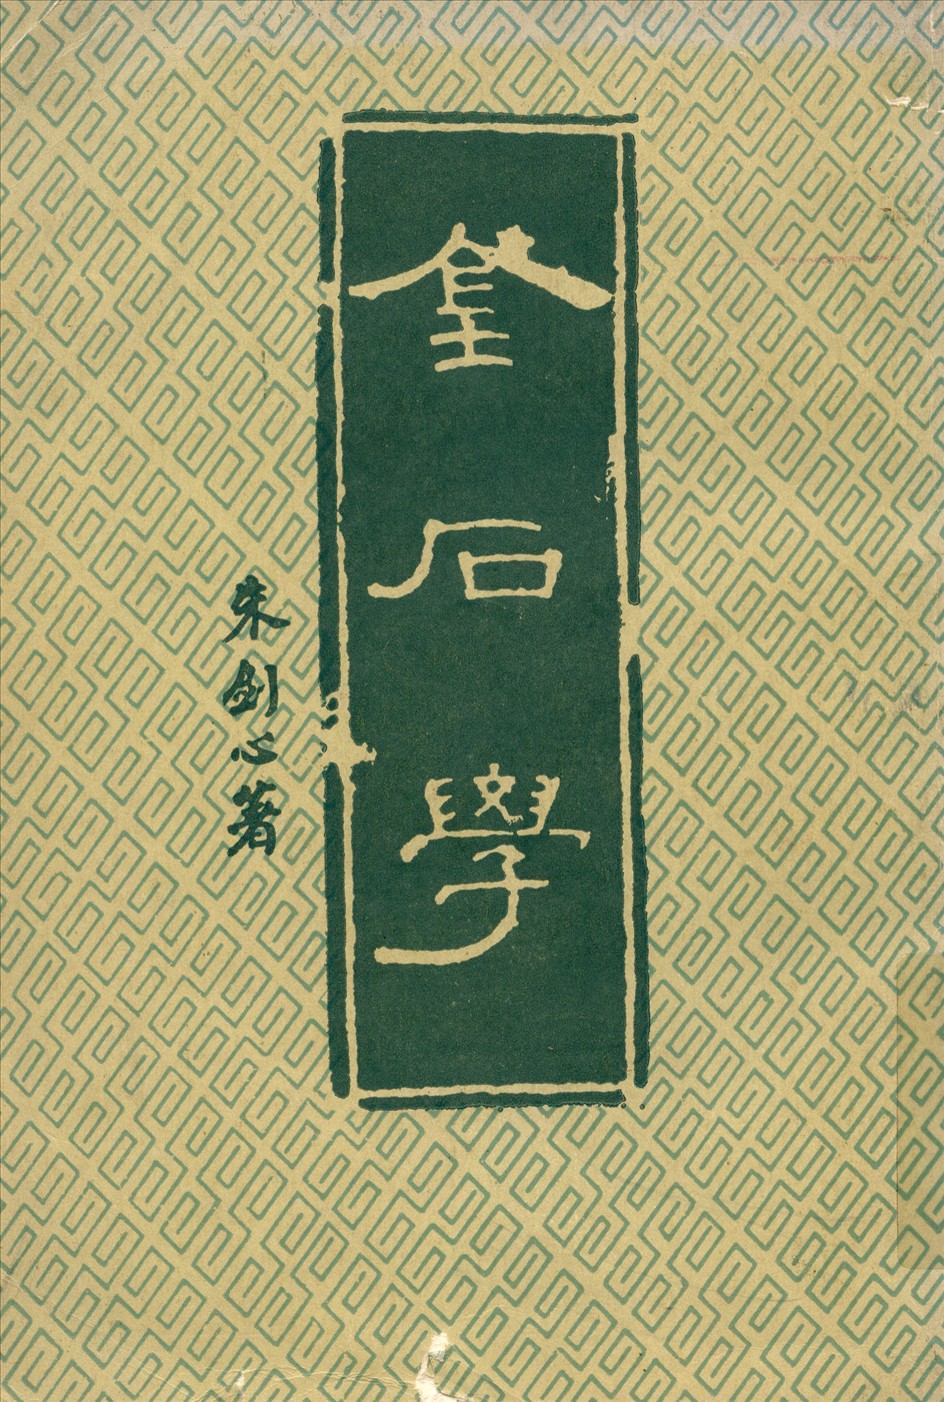 金石學
朱剑心著